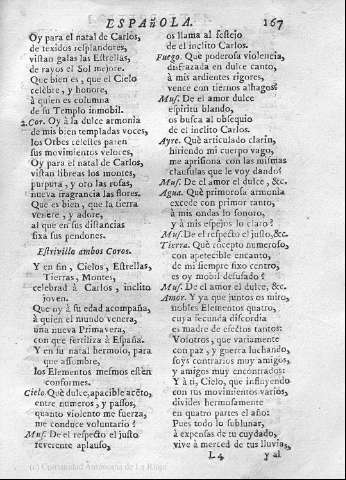 ESPAÑOLA. 167
Oy para el natal de Carlos,
de texidos resplandores,
vistan galas las Estrellas,
de rayos el Sol mejore.
Que bien es, que el Cielo
celebre, y honore,
à quien es columna
de su Templo inmobil.
2. Cor. Oy à la dulce armonia
de mis bien templadas voces,
los Orbes celestes paren
sus movimientos veloces,
Oy para el natal de Carlos,
vistan libreas los montes,
purpura, y oro las rosas,
nueva fragrancia las flores.
Que es bien, que la tierra
venere, y adore,
al que en sus distancias
fixa sus pendones.
Estrivillo ambos Coros.
Y en fin, Cielos, Estrellas,
Tierras, Montes,
celebrad à Carlos, inclito
joven.
Que oy à su edad acompaña,
à quien el mundo venera,
una nueva Primavera,
con que fertiliza à España.
Y en su natal hermoso, para
que assombre,
los Elementos mesmos estèn
conformes.
Cielo. Què dulce, apacible acẽto,
entre numeros, y passos,
quanto violento me fuerza,
me conduce voluntario?
Mus. De el respecto el justo
reverente aplauso,
os llama al festejo
de el inclito Carlos.
Fuego. Què poderosa violencia,
disfrazada en dulce canto,
à mis ardientes rigores,
vence con tiernos alhagos?
Mus. De el amor dulce
espiritu blando,
os busca al obsequio
de el inclito Carlos.
Ayre. Què articulado clarin,
hiriendo mi cuerpo vago,
me aprisiona con las mismas
clausulas que le voy dando?
Mus. De el amor el dulce, &c.
Agua. Què primorosa armonia
excede con primor tanto,
à mis ondas lo sonoro,
y à mis espejos lo claro?
Mus. De el respecto el justo, &c.
Tierra. Què recepto numeroso,
con apetecible encanto,
de mi siempre fixo centro,
es oy mobil desusado?
Mus. De el amor el dulce, &c.
Amor. Y ya que juntos os miro,
nobles Elementos quatro,
cuya fecunda discordia
es madre de efectos tantos:
Vosotros, que variamente
con paz, y guerra luchando,
soys contrarios muy amigos,
y amigos muy encontrados:
Y à ti, Cielo, que influyendo
con tus movimientos varios,
divides hermosamente
en quatro partes el año:
Pues todo lo sublunar,
à expensas de tu cuydado,
vive à merced de tus lluvias,
L4 y al
(c) Comunidad Autónoma de La Rioja